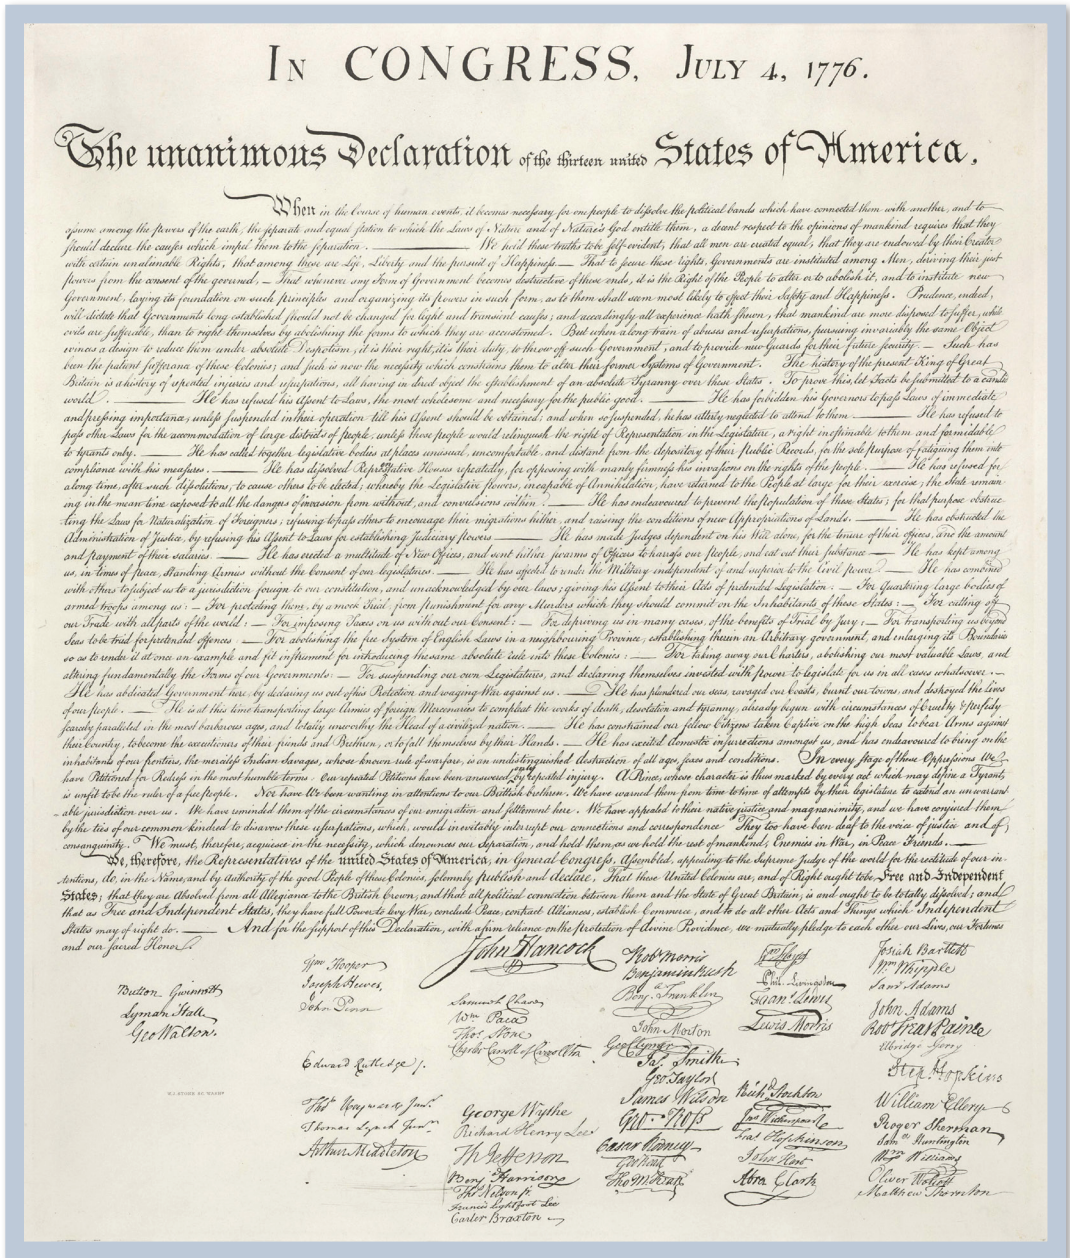 In CONGRESS, July 4, 1776.
The unanimous Declaration of the thirteen united States of America,
When in the Course of human events, it becomes necessary for one people to dissolve the political bands which have connected them with another, and to
assume among the powers of the earth, the separate and equal station to which the Laws of Nature and of Nature's God entitle them, a decent respect to the opinions of mankind requires that they
should declare the causes which impel them to the separation. — We hold these truths to be self-evident, that all men are created equal, that they are endowed by their Creator
with certain unalienable Rights, that among these are Life, Liberty and the pursuit of Happiness.— That to secure these rights, Governments are instituted among Men, deriving their just
powers from the consent of the governed, — That whenever any Form of Government becomes destructive of these ends, it is the Right of the People to alter or to abolish it, and to institute new
Government, laying its foundation on such principles and organizing its powers in such form, as to them shall seem most likely to effect their Safety and Happiness. Prudence, indeed,
will dictate that Governments long established should not be changed for light and transient causes; and accordingly all experience hath shewn, that mankind are more disposed to suffer, while
evils are sufferable, than to right themselves by abolishing the forms to which they are accustomed. But when a long train of abuses and usurpations, pursuing invariably the same Object
evinces a design to reduce them under absolute Despotism, it is their right, it is their duty, to throw off such Government, and to provide new Guards for their future security. — Such has
been the patient sufferance of these Colonies; and such is now the necessity which constrains them to alter their former Systems of Government. The history of the present King of Great
Britain is a history of repeated injuries and usurpations, all having in direct object the establishment of an absolute Tyranny over these States. To prove this, let Facts be submitted to a candid
world. — He has refused his Assent to Laws, the most wholesome and necessary for the public good. — He has forbidden his Governors to pass Laws of immediate
and pressing importance, unless suspended in their operation till his Assent should be obtained; and when so suspended, he has utterly neglected to attend to them. — He has refused to
pass other Laws for the accommodation of large districts of people, unless those people would relinquish the right of Representation in the Legislature, a right inestimable to them and formidable
to tyrants only. — He has called together legislative bodies at places unusual, uncomfortable, and distant from the depository of their public Records, for the sole purpose of fatiguing them into
compliance with his measures. — He has dissolved Representative Houses repeatedly, for opposing with manly firmness his invasions on the rights of the people. — He has refused for
a long time, after such dissolutions, to cause others to be elected; whereby the Legislative powers, incapable of Annihilation, have returned to the People at large for their exercise; the State remain
ing in the mean time exposed to all the dangers of invasion from without, and convulsions within. — He has endeavoured to prevent the population of these States; for that purpose obstruc
ting the Laws for Naturalization of Foreigners; refusing to pass others to encourage their migrations hither, and raising the conditions of new Appropriations of Lands. — He has obstructed the
Administration of Justice, by refusing his Assent to Laws for establishing Judiciary powers — He has made Judges dependent on his Will alone, for the tenure of their offices, and the amount
and payment of their salaries. — He has erected a multitude of New Offices, and sent hither swarms of Officers to harrass our people, and eat out their substance. — He has kept among
us, in times of peace, Standing Armies without the Consent of our legislatures. — He has affected to render the Military independent of and superior to the Civil power. — He has combined
with others to subject us to a jurisdiction foreign to our constitution, and unacknowledged by our laws; giving his Assent to their Acts of pretended Legislation: — For Quartering large bodies of
armed troops among us: — For protecting them, by a mock Trial, from punishment for any Murders which they should commit on the Inhabitants of these States: — For cutting off
our Trade with all parts of the world: — For imposing Taxes on us without our Consent: — For depriving us in many cases, of the benefits of Trial by Jury: — For transporting us beyond
Seas to be tried for pretended offences — For abolishing the free System of English Laws in a neighbouring Province, establishing therein an Arbitrary government, and enlarging its Boundaries
so as to render it at once an example and fit instrument for introducing the same absolute rule into these Colonies: — For taking away our Charters, abolishing our most valuable Laws, and
altering fundamentally the Forms of our Governments: — For suspending our own Legislatures, and declaring themselves invested with power to legislate for us in all cases whatsoever. —
He has abdicated Government here, by declaring us out of his Protection and waging War against us. — He has plundered our seas, ravaged our Coasts, burnt our towns, and destroyed the lives
of our people. — He is at this time transporting large Armies of foreign Mercenaries to compleat the works of death, desolation and tyranny, already begun with circumstances of Cruelty & perfidy
scarcely paralleled in the most barbarous ages, and totally unworthy the Head of a civilized nation. — He has constrained our fellow Citizens taken Captive on the high Seas to bear Arms against
their Country, to become the executioners of their friends and Brethren, or to fall themselves by their Hands. — He has excited domestic insurrections amongst us, and has endeavoured to bring on the
inhabitants of our frontiers, the merciless Indian Savages, whose known rule of warfare, is an undistinguished destruction of all ages, sexes and conditions. In every stage of these Oppressions We
have Petitioned for Redress in the most humble terms: Our repeated Petitions have been answered only by repeated injury. A Prince, whose character is thus marked by every act which may define a Tyrant,
is unfit to be the ruler of a free people. Nor have We been wanting in attentions to our Brittish brethren. We have warned them from time to time of attempts by their legislature to extend an unwarrant
able jurisdiction over us. We have reminded them of the circumstances of our emigration and settlement here. We have appealed to their native justice and magnanimity, and we have conjured them
by the ties of our common kindred to disavow these usurpations, which, would inevitably interrupt our connections and correspondence They too have been deaf to the voice of justice and of
consanguinity. We must, therefore, acquiesce in the necessity, which denounces our Separation, and hold them, as we hold the rest of mankind, Enemies in War, in Peace Friends. —
We, therefore, the Representatives of the united States of America, in General Congress, Assembled, appealing to the Supreme Judge of the world for the rectitude of our in-
tentions, do, in the Name, and by Authority of the good People of these Colonies, solemnly publish and declare, That these United Colonies are, and of Right ought to be Free and Independent
States; that they are Absolved from all Allegiance to the British Crown, and that all political connection between them and the State of Great Britain, is and ought to be totally dissolved; and
that as Free and Independent States, they have full Power to levy War, conclude Peace, contract Alliances, establish Commerce, and to do all other Acts and Things which Independent
States may of right do. — And for the support of this Declaration, with a firm reliance on the Protection of divine Providence, we mutually pledge to each other our Lives, our Fortunes
and our sacred Honor
Button Gwinnett
Lyman Hall
Geo Walton.
Wm Hooper
Joseph Hewes,
John Penn
Edward Rutledge /.
Thos Heyward Junr.
Thomas Lynch Junr.
Arthur Middleton
John Hancock
Samuel Chase
Wm Paca
Thos. Stone
Charles Carroll of Carrollton
George Wythe
Richard Henry Lee
Th Jefferson
Benj Harrison
Thos Nelson jr.
Francis Lightfoot Lee
Carter Braxton
Robt Morris
Benjamin Rush
Benj. Franklin
John Morton
Geo Clymer
Jas. Smith
Geo. Taylor
James Wilson
Geo. Ross
Caesar Rodney
Geo Read
Tho M:Kean
Wm Floyd
Phil. Livingston
Frans. Lewis
Lewis Morris
Richd. Stockton
Jno Witherspoon
Fras. Hopkinson
John Hart
Abra Clark
Josiah Bartlett
Wm Whipple
Saml Adams
John Adams
Robt Treat Paine
Elbridge Gerry
Step. Hopkins
William Ellery
Roger Sherman
Saml Huntington
Wm Williams
Oliver Wolcott
Matthew Thornton
W.J. STONE SC WASHN